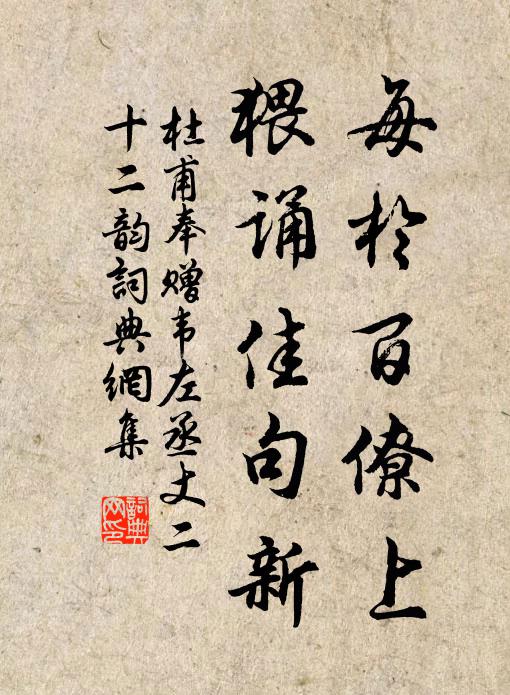 每於百僚上
猥誦佳句新
杜甫奉贈韦左丞丈二
十二韵詞典網集
詞典
网印